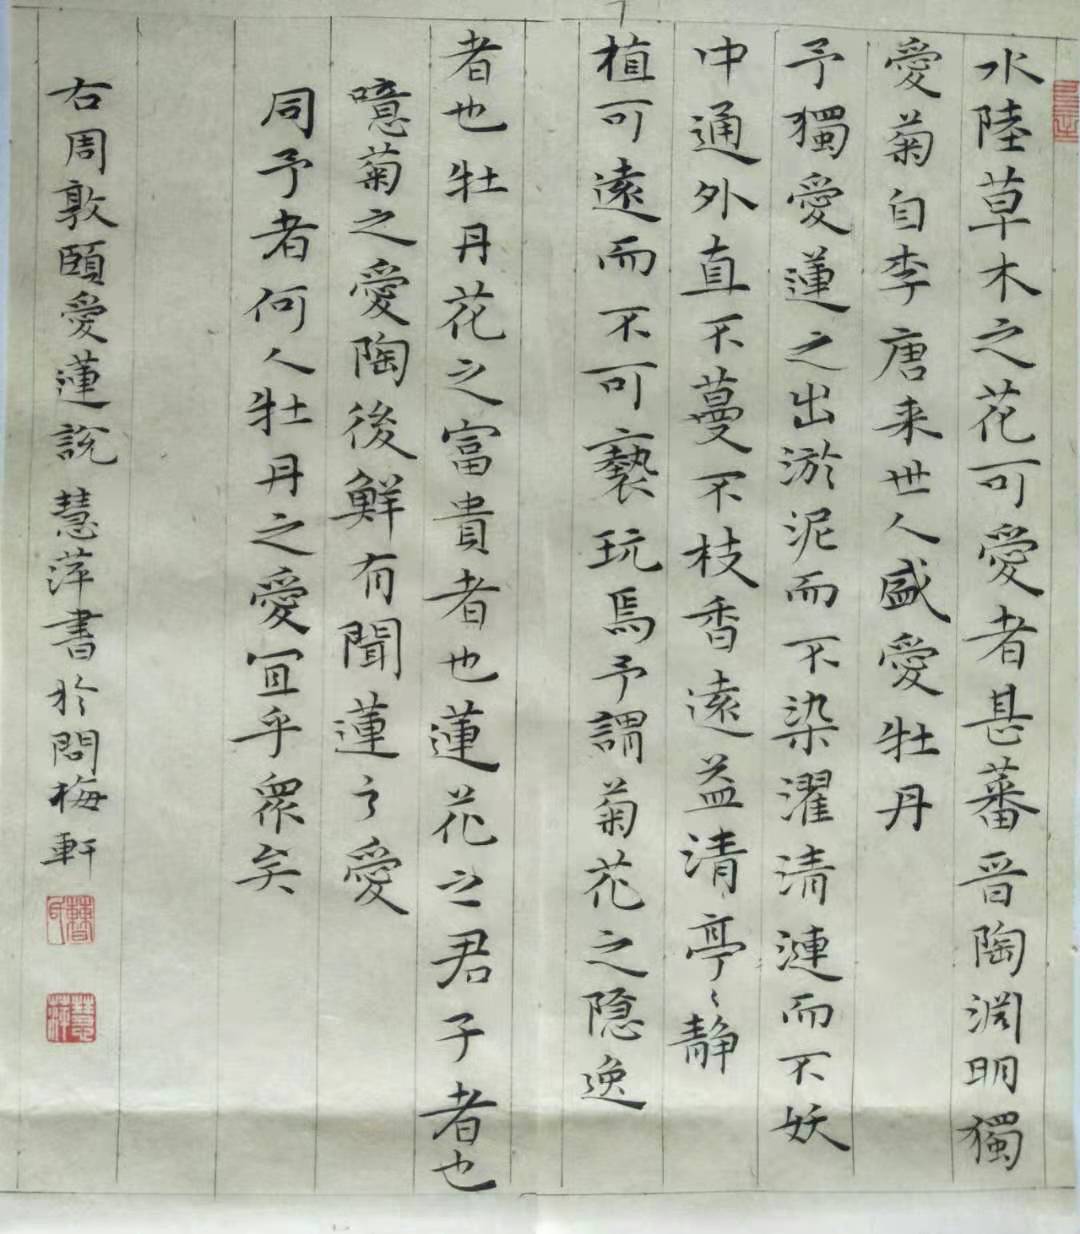 水陸草木之花可愛者甚蕃晉陶淵明獨
愛菊自李唐来世人盛愛牡丹
予獨愛蓮之出淤泥而不染濯清漣而不妖
中通外直不蔓不枝香遠益清亭〻静
植可遠而不可褻玩焉予謂菊花之隐逸
者也牡丹花之富貴者也蓮花之君子者也
噫菊之愛陶後鮮有聞蓮之愛
同予者何人牡丹之愛宜乎衆矣
右周敦頤愛蓮說慧萍書於問梅軒
慧萍